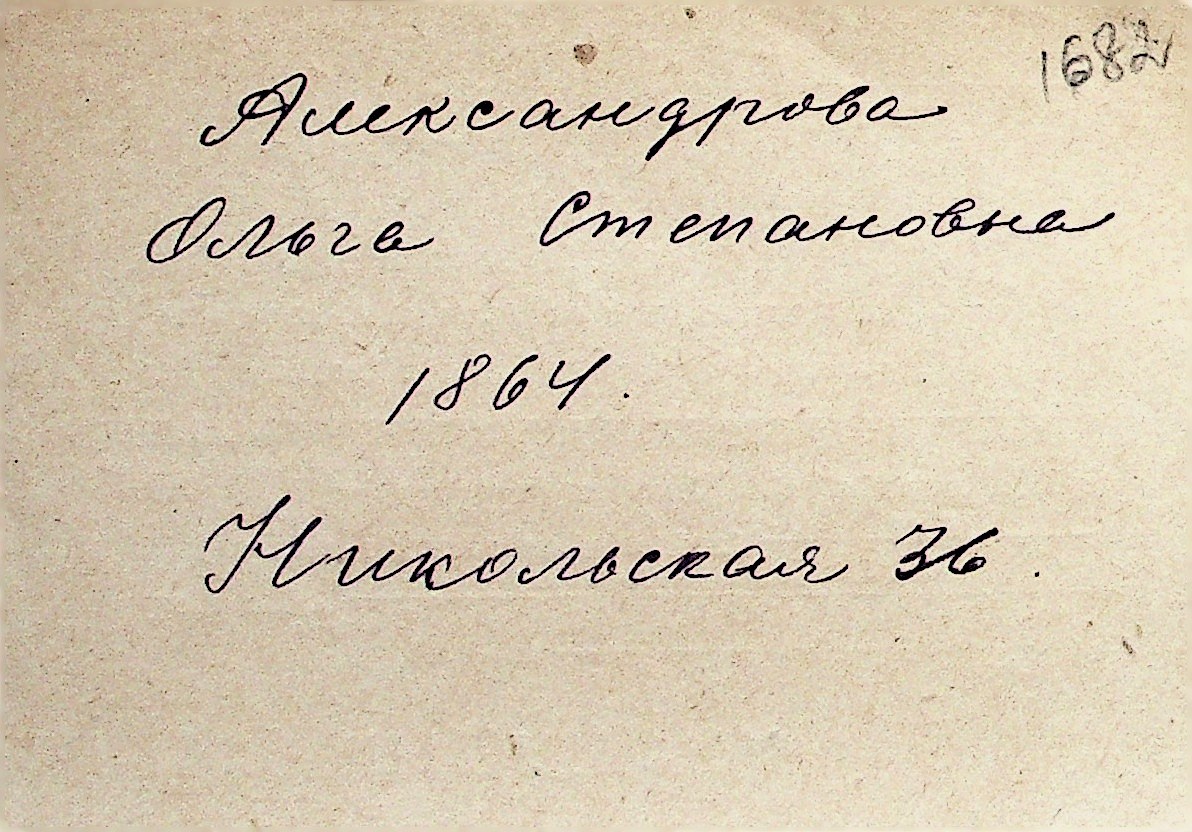 1682
Александрова
Ольга Степановна
1864.
Никольская 36.